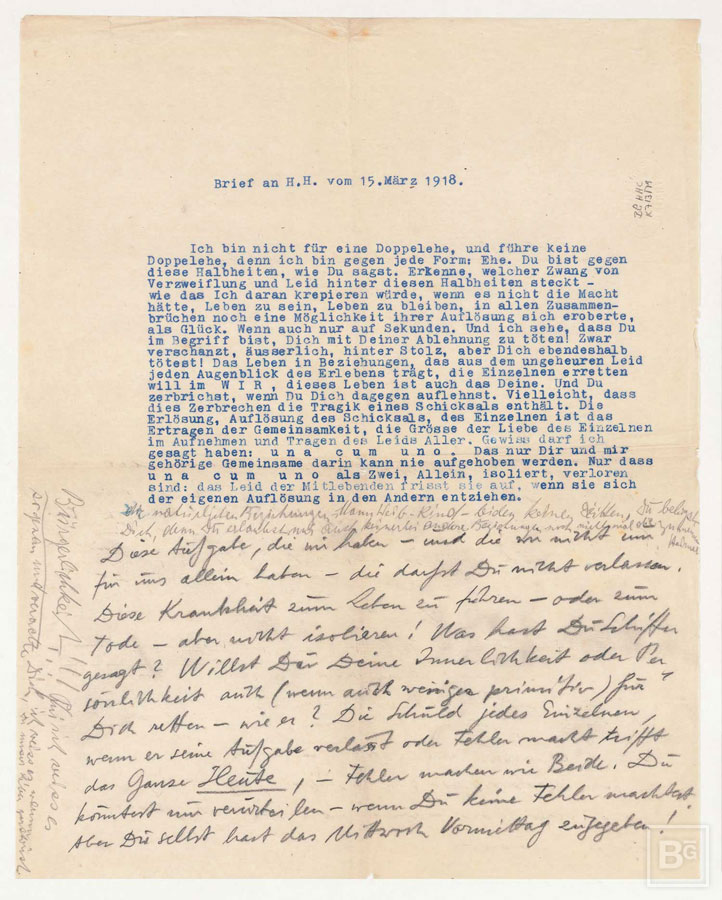 Brief an H.H. vom 15.März 1918.
BG HHC
K 713/79
Ich bin nicht für eine Doppelehe, und führe keine
Doppelehe, denn ich bin gegen jede Form: Ehe. Du bist gegen
diese Halbheiten, wie Du sagst. Erkenne, welcher Zwang von
Verzweiflung und Leid hinter diesen Halbheiten steckt -
wie das Ich daran krepieren würde, wenn es nicht die Macht
hätte, Leben zu sein, Leben zu bleiben, in allen Zusammen-
brüchen noch eine Möglichkeit ihrer Auflösung sich eroberte,
als Glück. Wenn auch nur auf Sekunden. Und ich sehe, dass Du
im Begriff bist, Dich mit Deiner Ablehnung zu töten! Zwar
verschanzt, äusserlich, hinter Stolz, aber Dich ebendeshalb
tötest! Das Leben in Beziehungen, das aus dem ungeheuren Leid
jeden Augenblick des Erlebens trägt, die Einzelnen erretten
will im W I R , dieses Leben ist auch das Deine. Und Du
zerbrichst, wenn Du Dich dagegen auflehnst. Vielleicht, dass
dies Zerbrechen die Tragik eines Schicksals enthält. Die
Erlösung, Auflösung des Schicksals, des Einzelnen ist das
Ertragen der Gemeinsamkeit, die Grösse der Liebe des Einzelnen
im Aufnehmen und Tragen des Leids Aller. Gewiss darf ich
gesagt haben: u n a c u m u n o . Das nur Dir und mir
gehörige Gemeinsame darin kann nie aufgehoben werden. Nur dass
u n a c u m u n o als Zwei, Allein, isoliert, verloren
sind: das Leid der Mitlebenden frisst sie auf, wenn sie sich
der eigenen Auflösung in den Andern entziehen.
Die natürlichen Beziehungen Mann-Weib-Kind - beiden keinen Du
Dich, denn Du erlaubst mir auch keinerlei andere Beziehungen noch nicht
Diese Aufgabe, die wir haben - und die wir nicht nur
für uns allein haben - die darfst Du nicht verlassen.
Diese Krankheit zum Leben zu führen - oder zum
Tode - aber nicht isolieren! Was hast Du Schiffer
gesagt? Willst Du Deine Innerlichkeit oder Per
sönlichkeit auch (wenn auch weniger primitiv) für
Dich retten - wie er? Die Schuld jedes Einzelnen,
wenn er seine Aufgabe verlässt oder Fehler macht trifft
das Ganze Heute, - Fehler machen wir Beide. Du
könntest nur verurteilen - wenn Du keine Fehler machtest
Aber Du selbst hast das Mittwoch Vormittag zugegeben!
Bürgerlichkeit!!!
BG